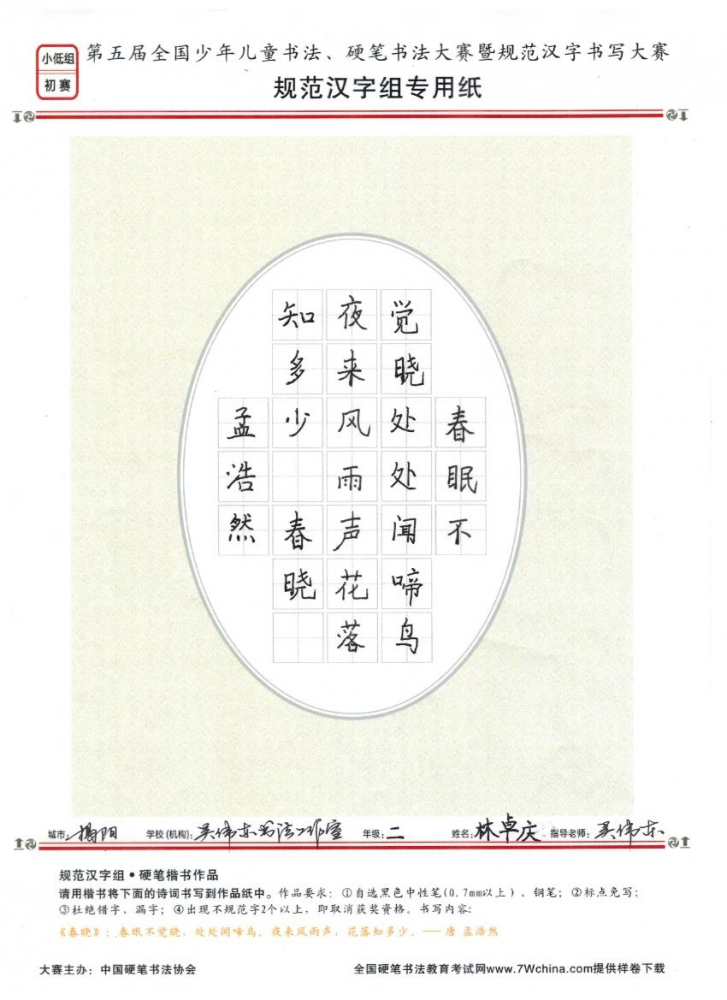 小低组
初赛
第五届全国少年儿童书法、硬笔书法大赛暨规范汉字书写大赛
规范汉字组专用纸
春眠不
觉晓处处闻啼鸟
夜来风雨声花落
知多少 春晓
孟浩然
城市：揭阳 学校(机构)：吴伟东书法工作室 年级：二 姓名：林卓庆 指导老师：吴伟东
规范汉字组•硬笔楷书作品
请用楷书将下面的诗词书写到作品纸中。作品要求：①自选黑色中性笔(0.7mm以上)、钢笔；②标点免写；
③杜绝错字、漏字；④出现不规范字2个以上，即取消获奖资格。书写内容：
《春晓》：春眠不觉晓，处处闻啼鸟。夜来风雨声，花落知多少。——唐 孟浩然
大赛主办：中国硬笔书法协会 全国硬笔书法教育考试网www.7Wchina.com提供样卷下载